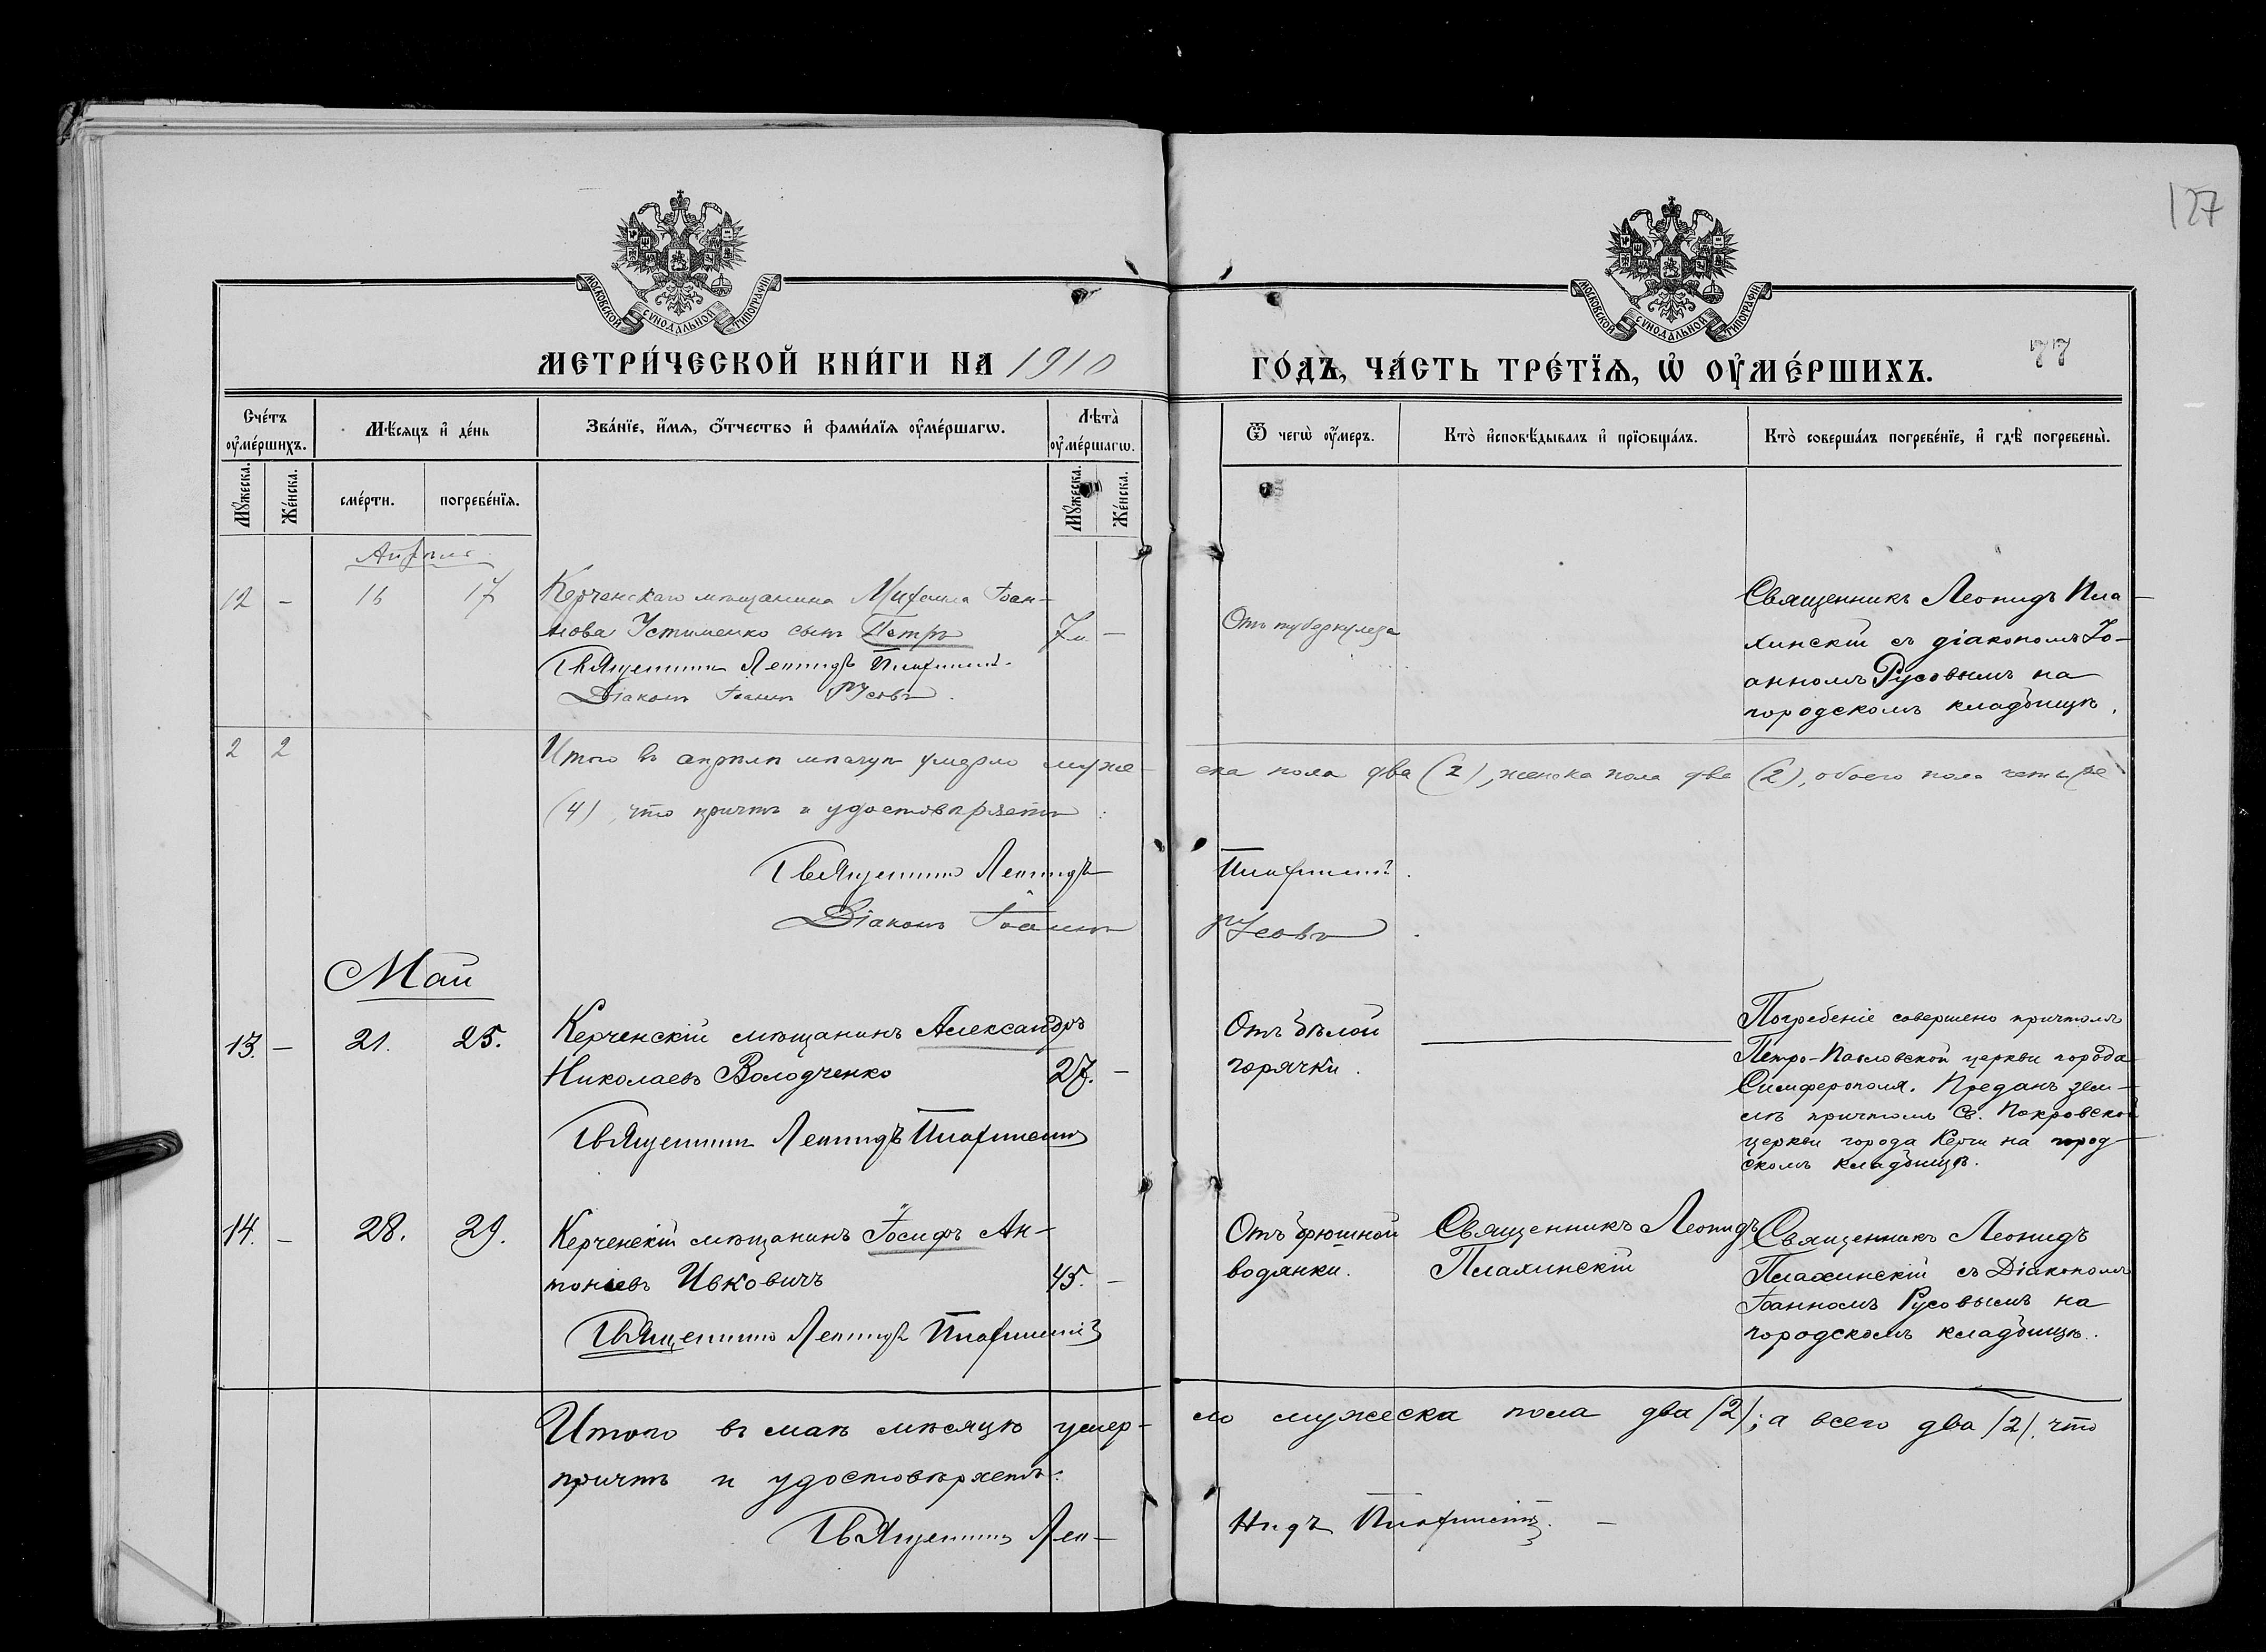 127
МОСКОВСКОЙ СѴНОДАЛЬНОЙ ТИПОГРАФІИ
МОСКОВСКОЙ СѴНОДАЛЬНОЙ ТИПОГРАФІИ
МЕТРИ́ЧЕСКОЙ КНИ́ГИ НА 1910
ГО́ДЪ, ЧА́СТЬ ТРЕ́ТІѦ, Ѡ҆ ОУ҆МЕ́РШИХЪ.
77
Сче́тъ оу҆ме́ршихъ.
Мѣ́сяцъ и҆ де́нь
Зва́нїе, и҆́мѧ, ѻ҆́тчество и҆ фами́лїѧ оу҆ме́ршагѡ.
Лѣта̀ оу҆ме́ршагѡ.
Ѿ чегѡ̀ оу҆́меръ.
Кто̀ и҆сповѣ́дывалъ и҆ прїѡбща́лъ.
Кто̀ соверша́лъ погребе́нїе, и҆ гдѣ̀ погребены̀.
Мꙋ́жеска.
Же́нска.
сме́рти.
погребе́нїѧ.
Мꙋ́жеска.
Же́нска.
Апрѣль
12 - 16 17 Керченскаго мѣщанина Михаила Іоан-
нова Устименко сынъ Петръ 7м. -
Священникъ Леонидъ Плахинскій.
Діаконъ Іоаннъ Русовъ.
Отъ туберкулеза
Священникъ Леонидъ Пла-
хинскій съ діакономъ Іо-
анномъ Русовымъ на
городскомъ кладбищѣ.
2 2 Итого въ апрѣлѣ мѣсяцѣ умерло муже-
ска пола два (2), женска пола два (2), обоего пола четыре
(4), что причтъ и удостовѣряетъ:
Священникъ Леонидъ Плахинскій.
Діаконъ Іоаннъ Русовъ.
Май
13. - 21. 25. Керченскій мѣщанинъ Александръ
Николаевъ Володченко 27. -
Священникъ Леонидъ Плахинскій
Отъ бѣлой
горячки.
Погребеніе совершено причтомъ
Петро-Павловской церкви города
Симферополя. Преданъ зем-
лѣ причтомъ Св. Покровской
церкви города Керчи на город-
скомъ кладбищѣ.
14. - 28. 29. Керченскій мѣщанинъ Іосифъ Ан-
тоніевъ Ивковичъ 45. -
Священникъ Леонидъ Плахинскій
Отъ брюшной
водянки.
Священникъ Леонидъ
Плахинскій
Священникъ Леонидъ
Плахинскій съ Діакономъ
Іоанномъ Русовымъ на
городскомъ кладбищѣ.
Итого въ маѣ мѣсяцѣ умер-
ло мужеска пола два /2/; а всего два /2/. что
причтъ и удостовѣряетъ:
Священникъ Лео-
нидъ Плахинскій. -